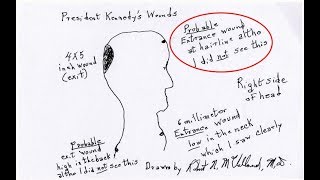 President Kennedy's Wounds
Probable
Entrance wound
at hairline altho
I did not see this
4X5
inch wound
(exit)
Right side
of head
6 millimeter
Entrance wound
low in the neck
which I saw clearly
Probable
exit wound
high in the back!
altho I did not see this
Drawn by Robt N. McClelland, M.D.